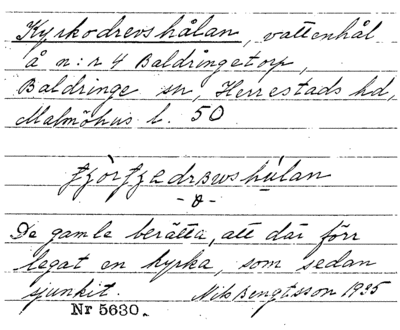 Kyrkodrevshålan, vattenhål
å n:r 4 Baldringetorp,
Baldringe sn, Herrestads hd,
Malmöhus l. 50
-o-
De gamle berätta, att där förr
legat en kyrka, som sedan
sjunkit. Nils Bengtsson 1935
Nr 5630.